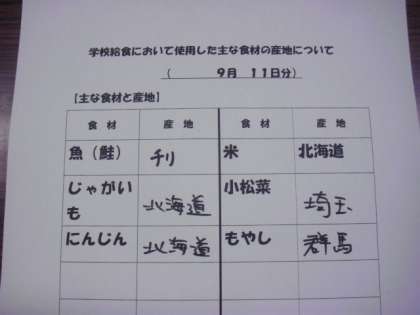 学校給食において使用した主な食材の産地について
( 9月 11日分)
【主な食材と産地】
食 材 産 地 食 材 産 地
魚（鮭） チリ 米 北海道
じゃがい
も 北海道 小松菜 埼玉
にんじん 北海道 もやし 群馬